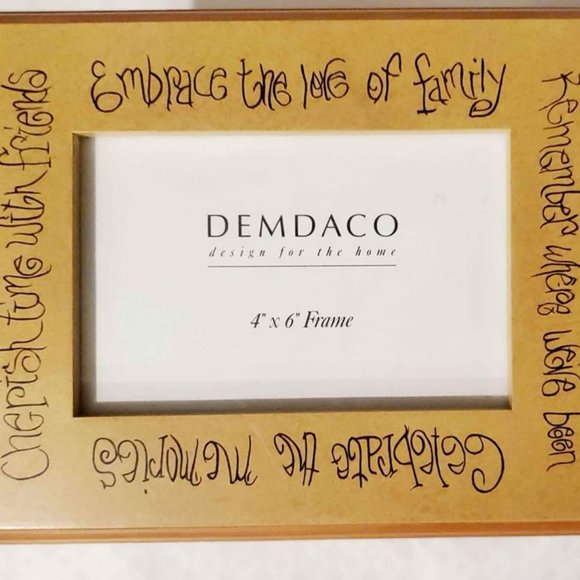 Embrace the love of family
Remember where we've been
Celebrate the memories
Cherish time with friends
DEMDACO
design for the home
4" x 6" Frame